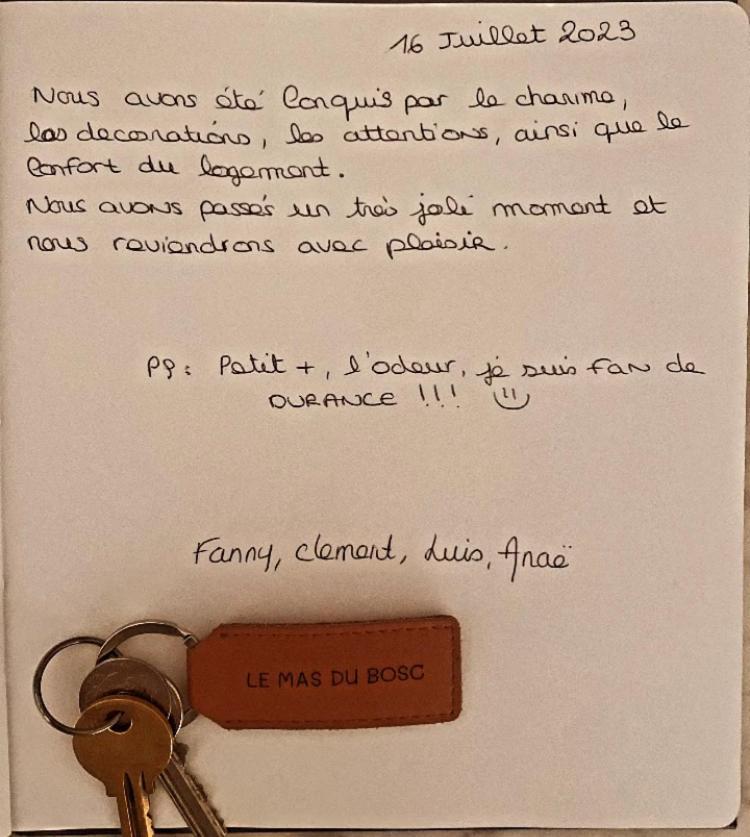 16 Juillet 2023
Nous avons été Conquis par le charme,
les decorations, les attentions, ainsi que le
Confort du logement.
Nous avons passés un très joli moment et
nous reviendrons avec plaisir.
PS: Petit +, l'odeur, je suis fan de
DURANCE !!!
Fanny, clement, Luis, Anaë
LE MAS DU BOSC